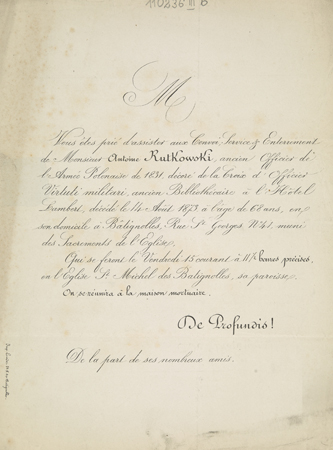 110236 III
M
Vous êtes prié d'assister aux Convoi, Service & Enterrement
de Monsieur Antoine Rutkowski, ancien Officier de
l'Armée Polonaise de 1831, décoré de la Croix d'Officier
Virtuti militari, ancien Bibliothécaire à l'Hôtel
Lambert, décédé le 14 Août 1873 à l'âge de 68 ans, en
son domicile à Batignolles, Rue St Georges Nº 41, muni
des Sacrements de l'Eglise,
Qui se feront le Vendredi 15 courant à heures précises,
en l'Eglise St Michel des Batignolles, sa paroisse.
On se réunira à la maison mortuaire.
De Profundis!
De la part de ses nombreux amis.